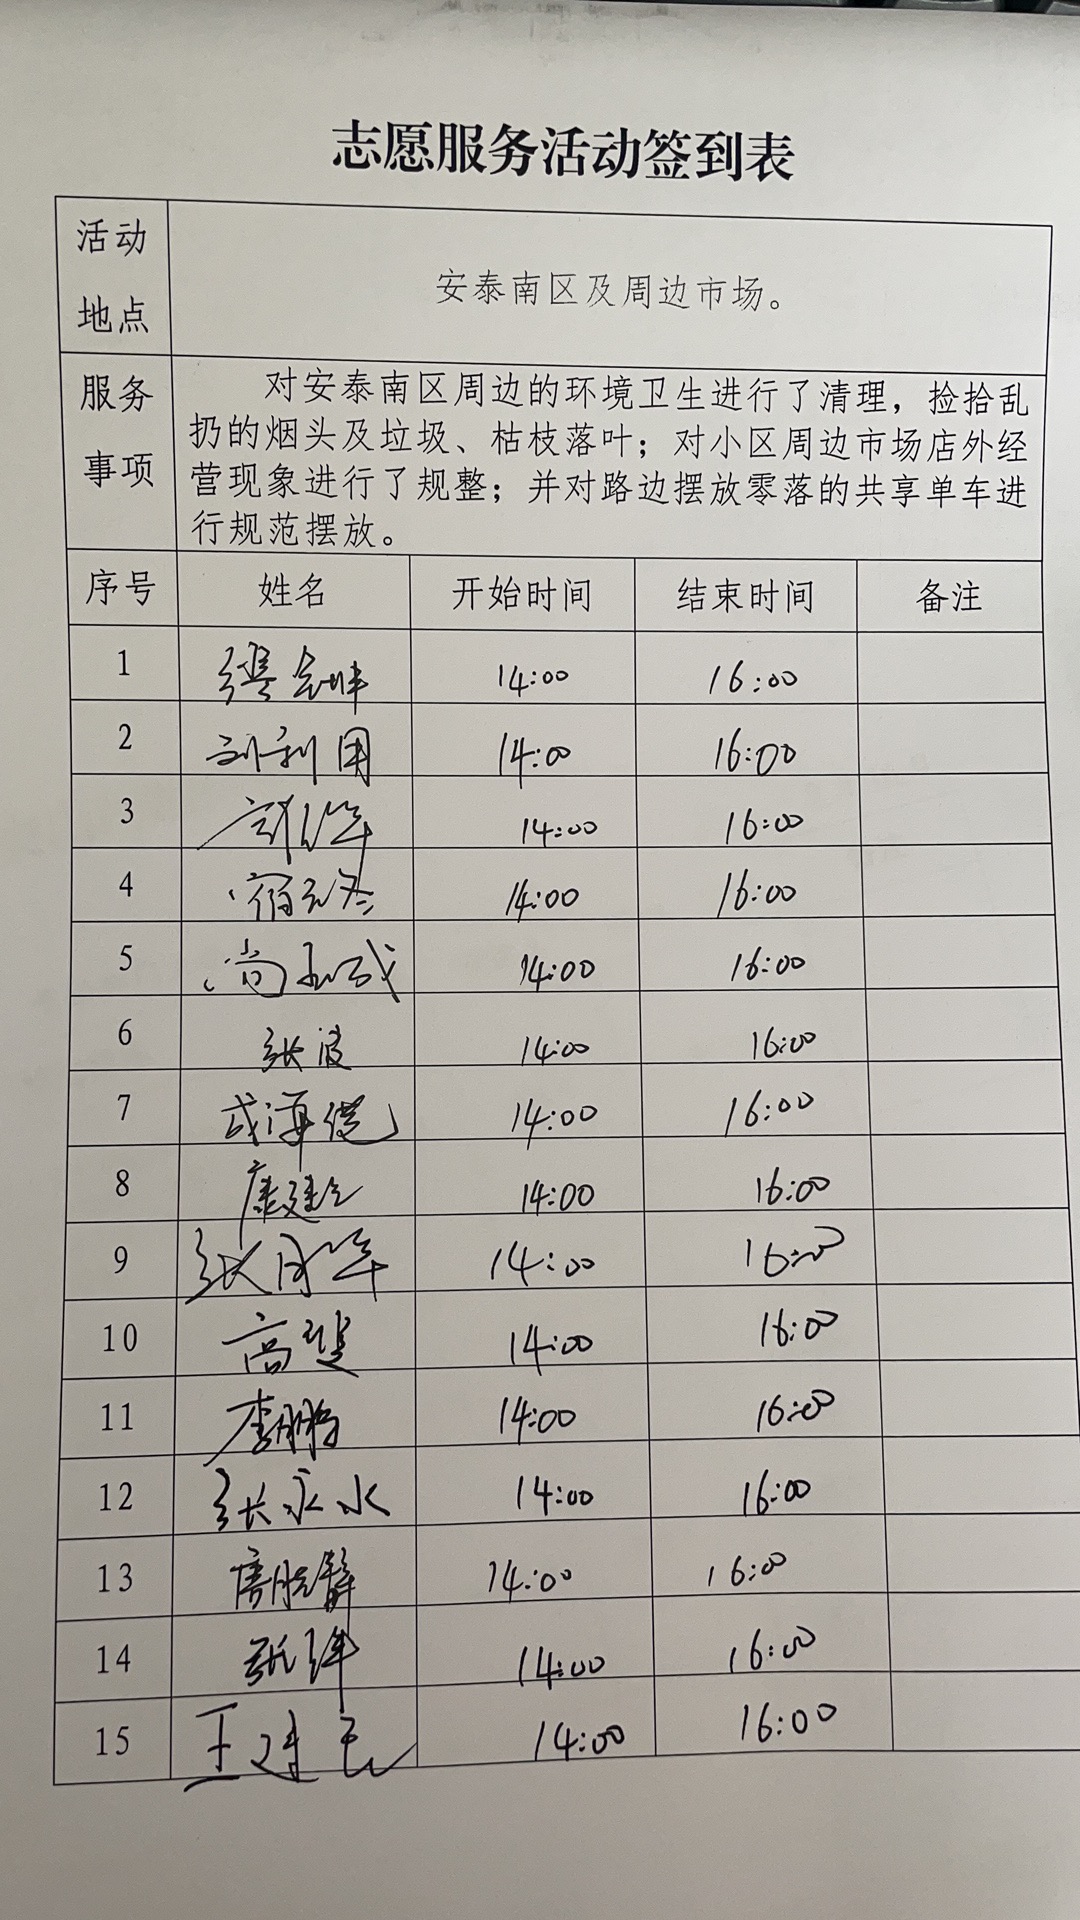 志愿服务活动签到表
活动
地点
安泰南区及周边市场。
服务
事项
对安泰南区周边的环境卫生进行了清理，捡拾乱
扔的烟头及垃圾、枯枝落叶；对小区周边市场店外经
营现象进行了规整；并对路边摆放零落的共享单车进
行规范摆放。
序号 姓名 开始时间 结束时间 备注
1 14:00 16:00
2 刘利国 14:00 16:00
3 14:00 16:00
4 14:00 16:00
5 尚 14:00 16:00
6 张波 14:00 16:00
7 成海 14:00 16:00
8 康建 14:00 16:00
9 张月华 14:00 16:00
10 高 14:00 16:00
11 李鹏 14:00 16:00
12 张永水 14:00 16:00
13 14:00 16:00
14 14:00 16:00
15 王建 14:00 16:00